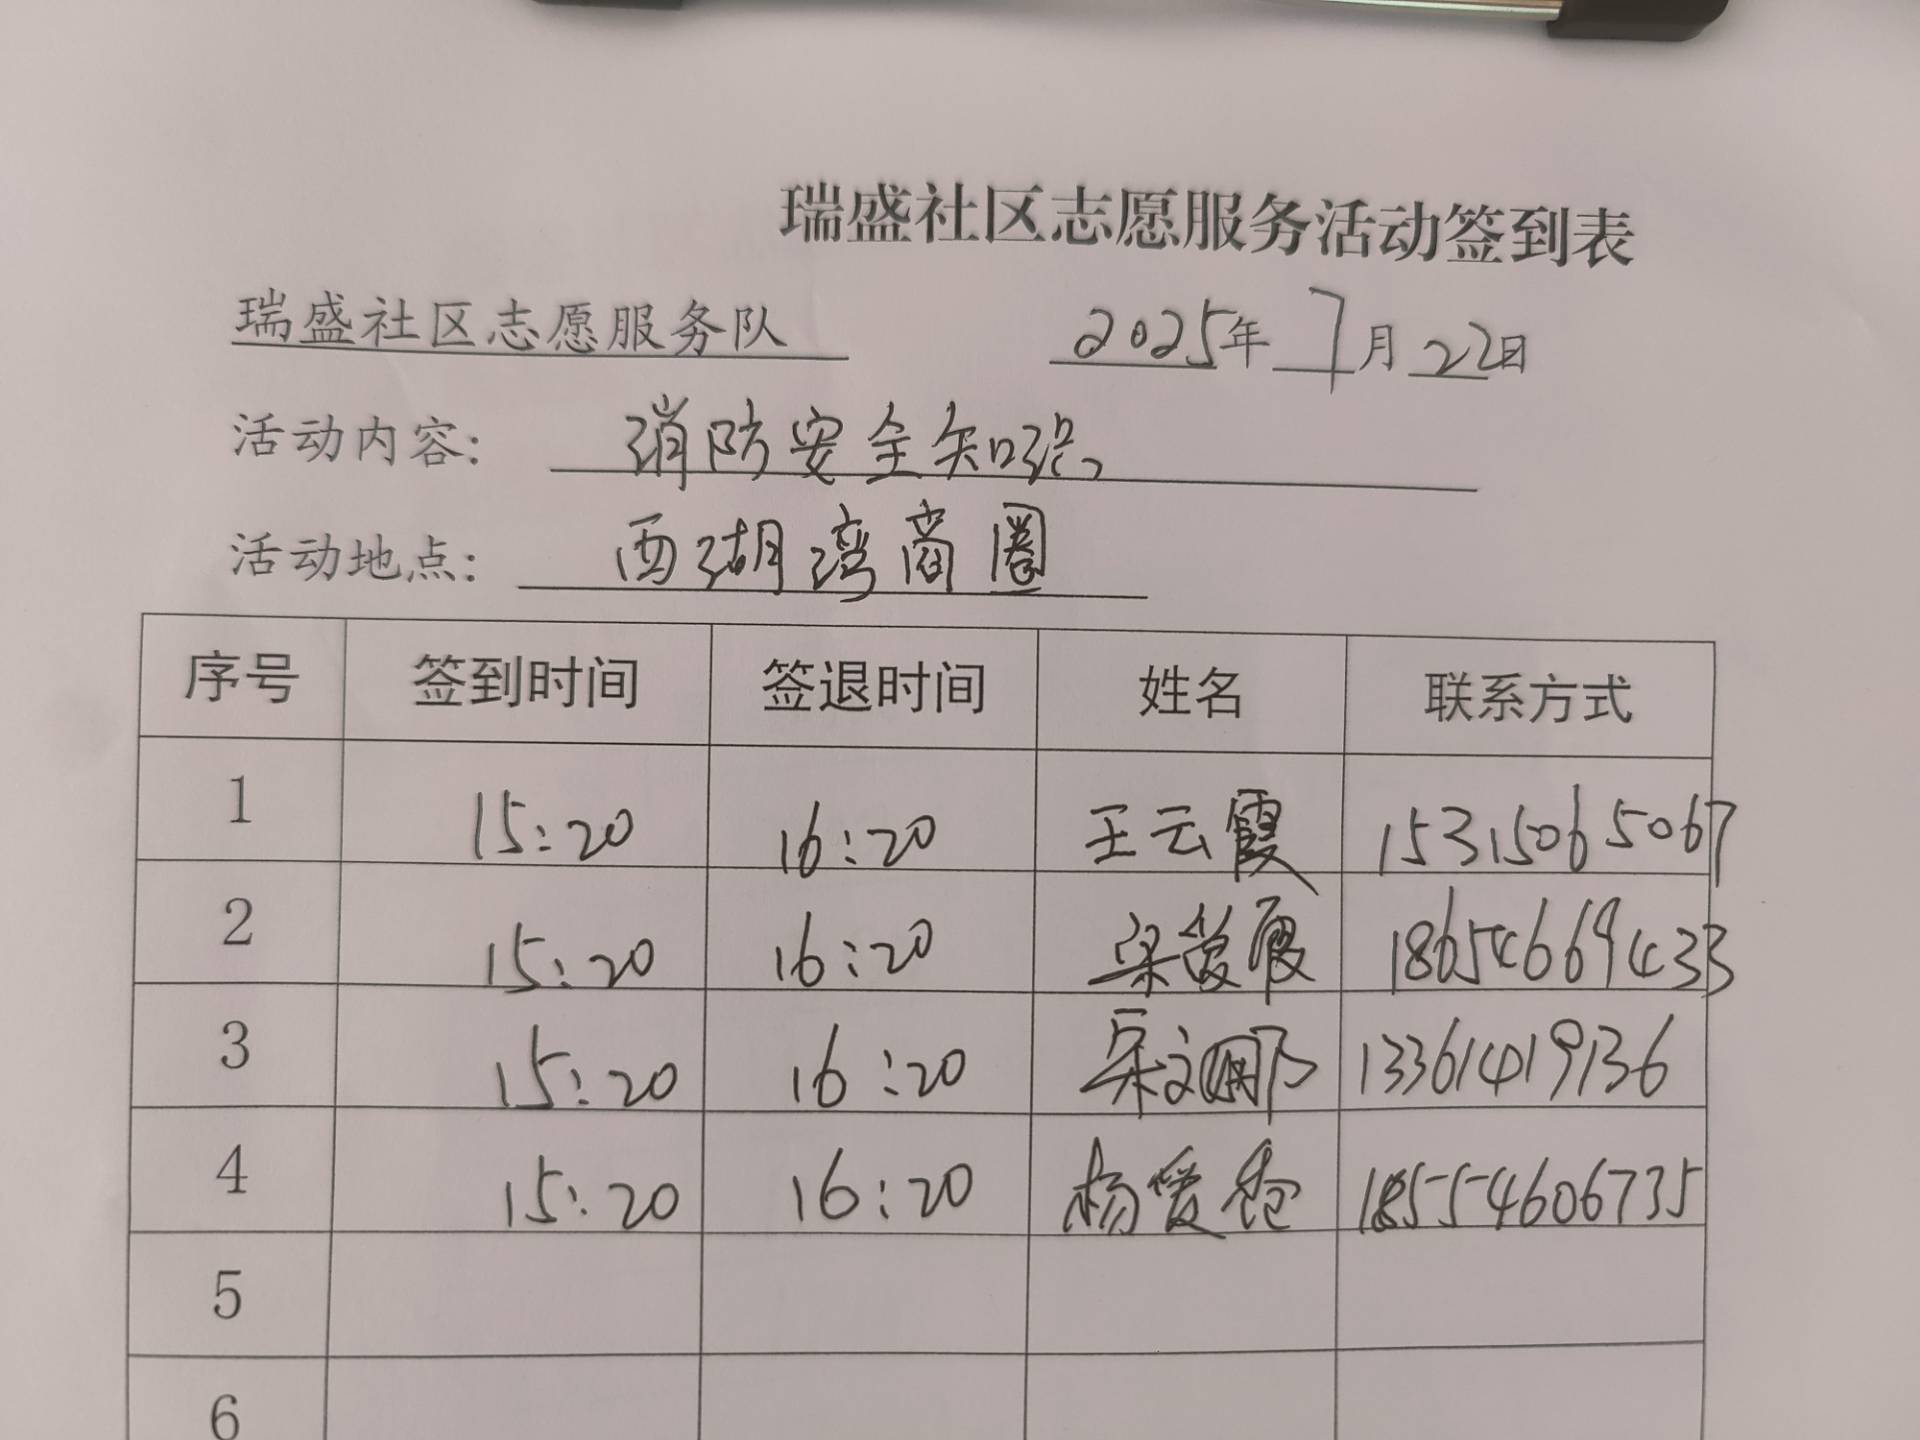 瑞盛社区志愿服务活动签到表
瑞盛社区志愿服务队 2025年7月22日
活动内容: 消防安全知识
活动地点: 西湖湾商圈
序号 签到时间 签退时间 姓名 联系方式
1 15:20 16:20 王云霞 15315065067
2 15:20 16:20 18654669433
3 15:20 16:20 13361419136
4 15:20 16:20 杨爱 18554606735
5
6